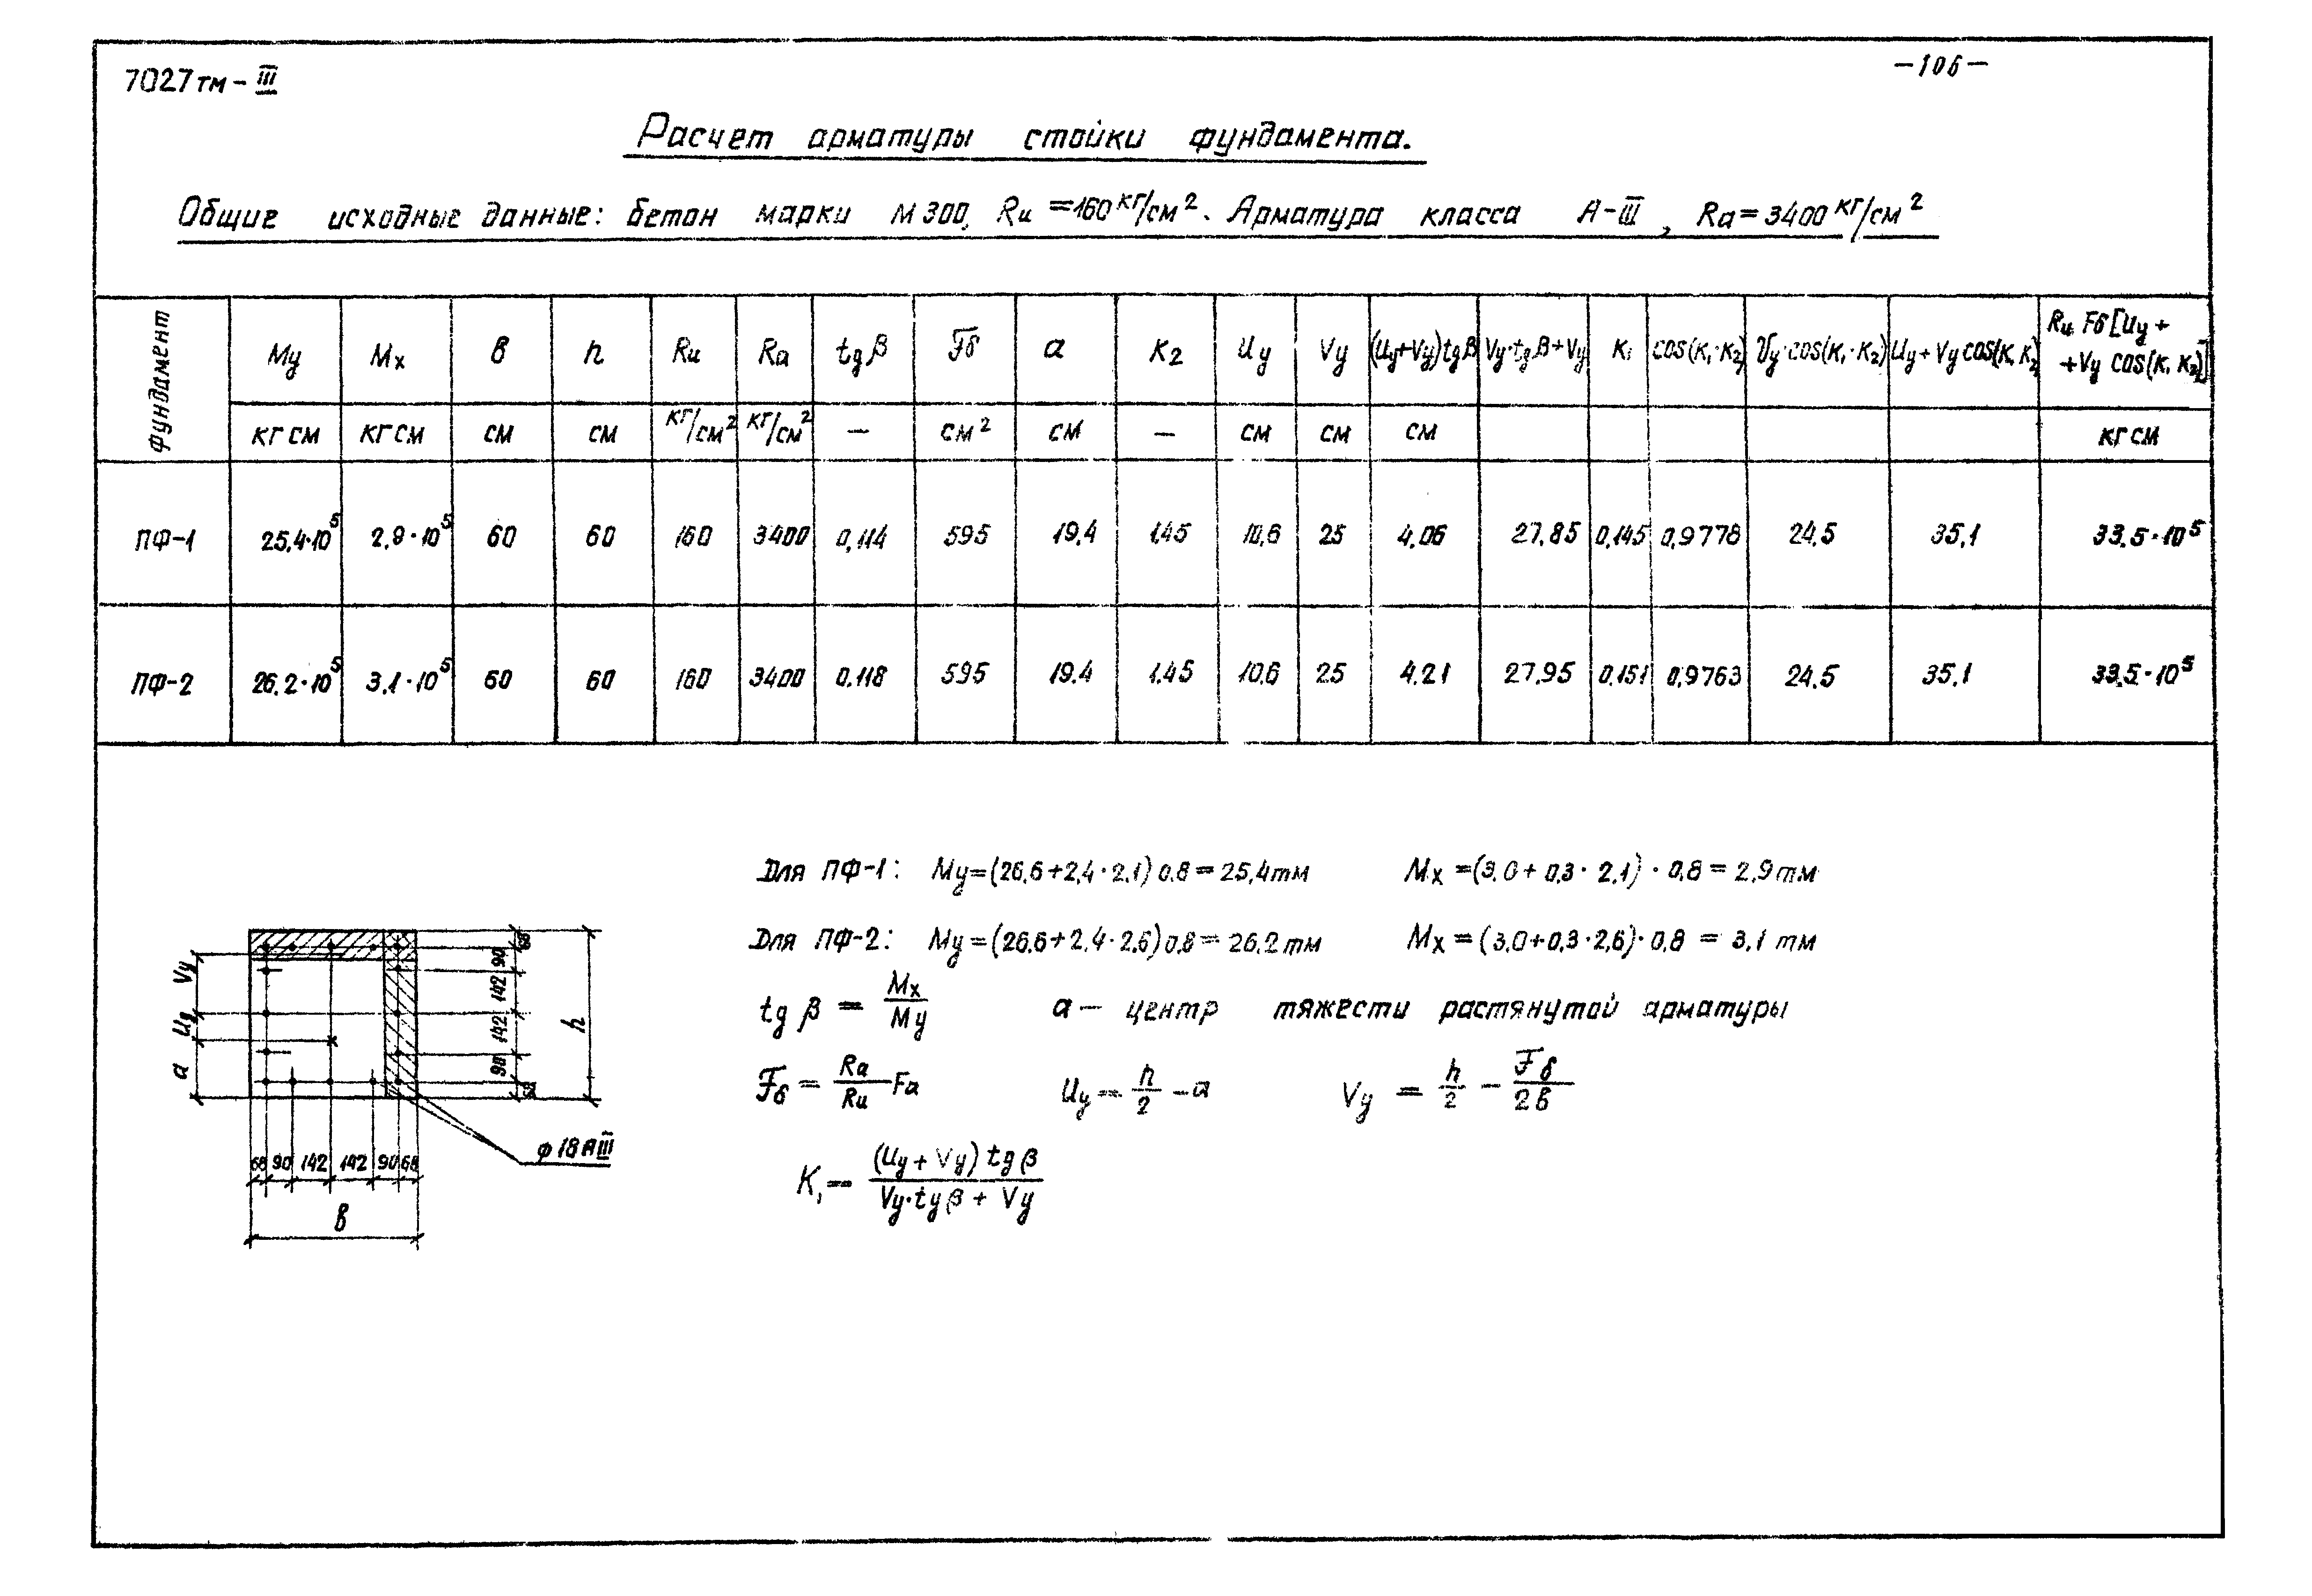 7027тм-III
-106-
Расчет арматуры стойки фундамента.
Общие исходные данные: бетон марки М300, Rи =160 кг/см². Арматура класса А-III, Rа=3400 кг/см²
Фундамент Му Мх в h Rи Rа tgβ Fб а К₂ Иу Vу (Иу+Vу)tgβ Vу·tgβ+Vу К₁ cos(К₁·К₂) Vу·cos(К₁·К₂) Иу+Vу cos(К₁К₂) Rи Fб[Иу+
+Vу cos(К₁К₂)]
кгсм кгсм см см кг/см² кг/см² — см² см — см см см кгсм
ПФ-1 25,4·10⁵ 2,9·10⁵ 60 60 160 3400 0,114 595 19,4 1,45 10,6 25 4,06 27,85 0,145 0,9778 24,5 35,1 33,5·10⁵
ПФ-2 26,2·10⁵ 3,1·10⁵ 60 60 160 3400 0,118 595 19,4 1,45 10,6 25 4,21 27,95 0,151 0,9763 24,5 35,1 33,5·10⁵
Для ПФ-1: Му=(26,6+2,4·2,1)0,8=25,4тм Мх=(3,0+0,3·2,1)·0,8=2,9тм
Для ПФ-2: Му=(26,6+2,4·2,6)0,8=26,2тм Мх=(3,0+0,3·2,6)·0,8=3,1тм
tgβ = Мх/Му а — центр тяжести растянутой арматуры
Fб = Rа/Rи Fа Иу = h/2 - а Vу = h/2 - Fб/2в
К₁ = (Иу+Vу)tgβ / Vу·tуβ + Vу
Vу Иу а
68 90 142 142 90 68
h
ф18АIII
68 90 142 142 90 68
в